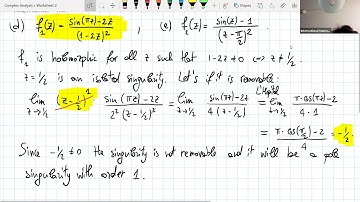 Complex Analysis • Worksheet 2
(d) f₂(z) = sin(πz)-2z / (1-2z)² , (e) f₂(z) = sin(z) - 1 / (z - π/2)²
f₂ is holomorphic for all z such that 1-2z ≠ 0 ⟺ z ≠ 1/2
z = 1/2 is an isolated singularity. Let's if it is removable:
lim z→1/2 (z - 1/2)¹ sin(πz) - 2z / 2² (z - 1/2)² = lim z→1/2 sin(πz) - 2z / 4 (z - 1/2) = L'Hôpital lim z→1/2 π·cos(πz) - 2 / 4·1
= π·cos(π/2) - 2 / 4 = -1/2
Since -1/2 ≠ 0 the singularity is not removable and it will be a pole
singularity with order 1.